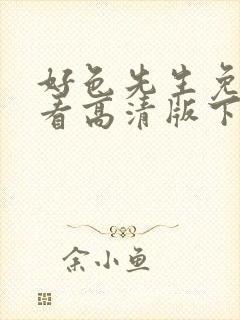 好色先生免
看高清版下
余小鱼